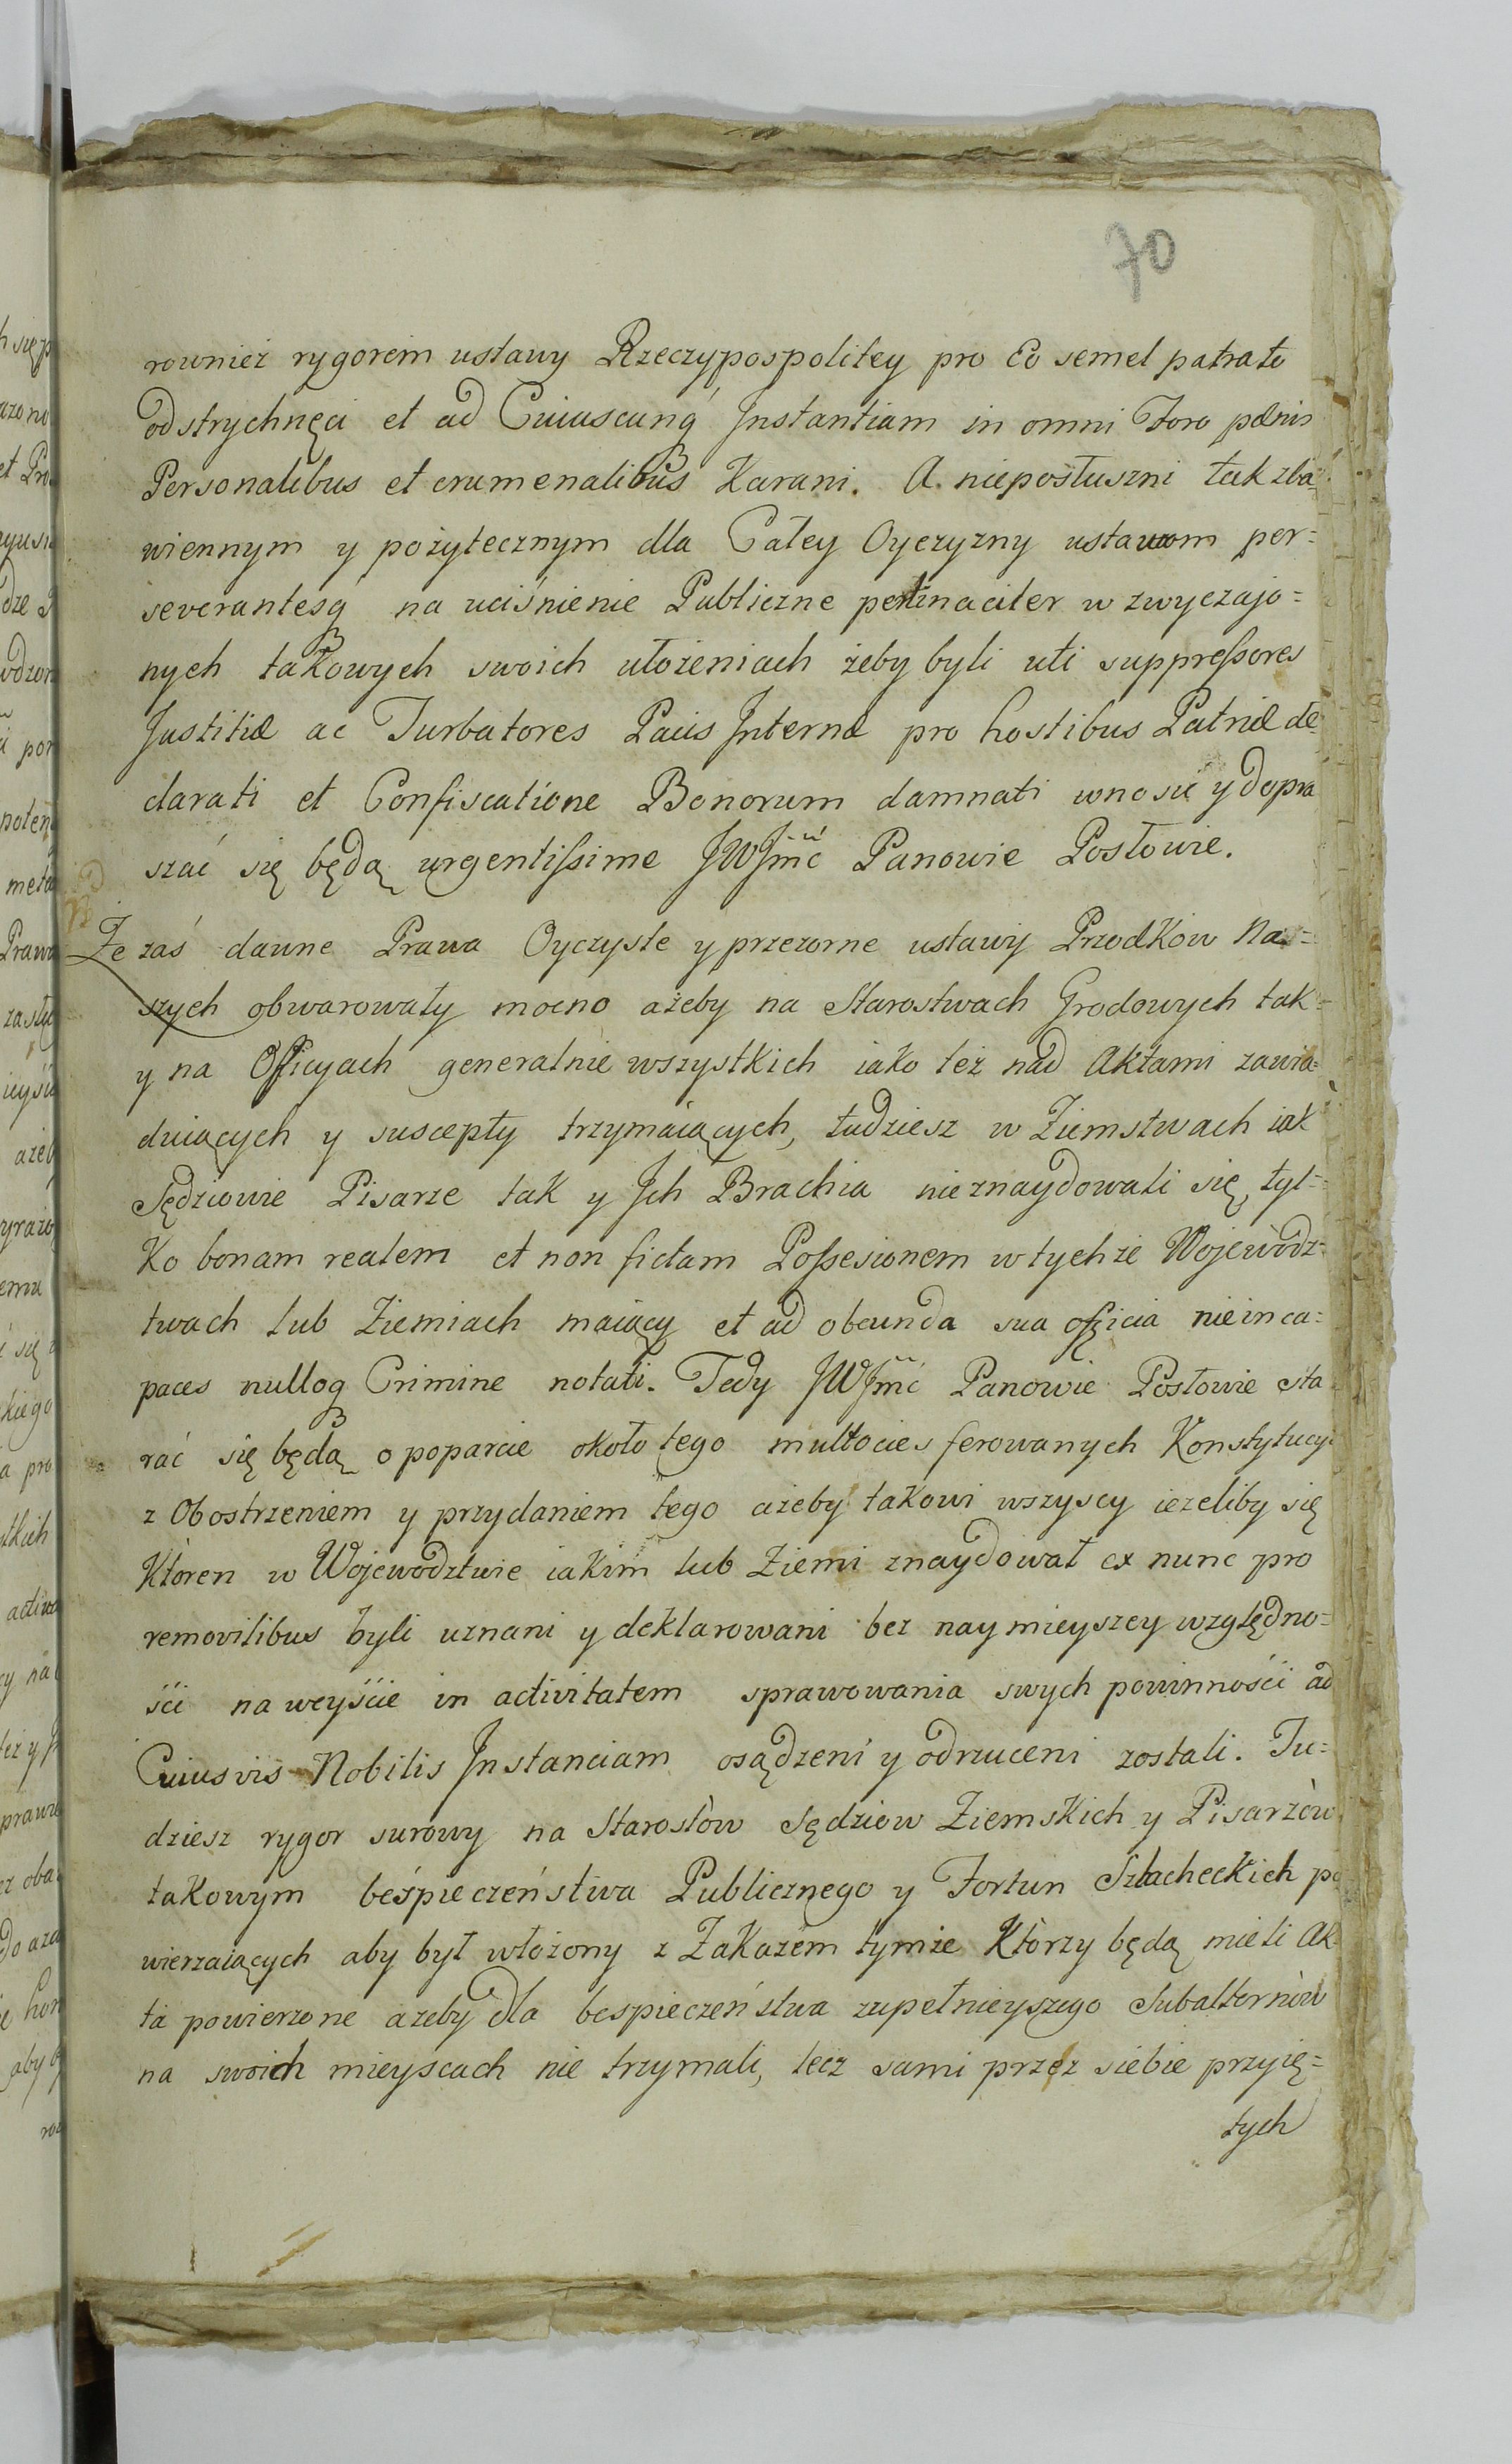 70
rownież rygorem ustawy Rzeczypospolitey pro Eo semel patrato
odstrychnęci et ad Cuiuscunq́ Jnstantiam in omni Foro pænis
Personalibus et crumenalibus Karani. A. nieposłuszni tak zba=
wiennym y pożytecznym dla Całey Oyczyzny ustawom per=
severantesq na uciśnienie Publiczne pertinaciter w zwyczajo=
nych takowych swoich ułożeniach żeby byli uti suppreſsores
Justitiæ ac Turbatores Pacis Jnternæ pro hostibus Patriæ de=
clarati et Confiscatione Bonorum damnati wnosić y dopra
szać się będą urgentiſsime JWJmć Panowie Posłowie.
Że zaś dawne Prawa Oyczyste y przezorne ustawy Przodków Na=
szych obwarowały mocno ażeby na Starostwach Grodowych tak=
y na Officyach generalnie wszystkich iako też nad Aktami zawia=
duiących y suscepty trzymaiących, tudziesz w Ziemstwach iak
Sędziowie Pisarze tak y Jch Brachia nieznaydowali się, tyl=
Ko bonam realem et non fictam Poſsesionem w tychże Wojewòdz=
twach lub Ziemiach maiący et ad obeunda sua officia nie inca=
paces nulloq Crimine notati. Tedy JWJmć Panowie Posłowie sta
rać się będą o poparcie około tego multoties ferowanych Konstytucyi
z Obostrzeniem y przydaniem tego ażeby takowi wszyscy ieżeliby się
Ktòren w Wojewodztwie iakim lub Ziemi znaydował ex nunc pro
removilibus byli uznani y deklarowani bez naymieyszey względno=
ści na weyście in activitatem sprawowania swych powinności ad
Cuiusvis Nobilis Jnstanciam osądzeni y odrzuceni zostali. Tu=
dziesz rygor surowy na Starostòw Sędziow Ziemskich y Pisarzòw
takowym beśpieczeństwa Publicznego y Fortun Szlacheckich po
wierzaiących aby był włożony z Zakazem tymże Ktòrzy będą mieli Ak
ta powierzone ażeby dla bespieczeństwa zupełnieyszego Subalternòw
na swoich mieyscach nie trzymali, lecz sami przez siebie przyię=
tych